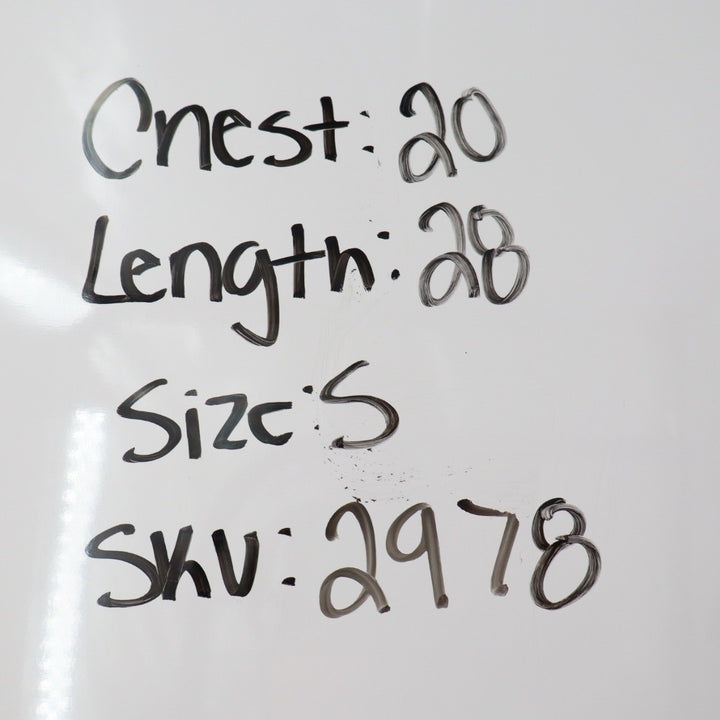 Chest: 20
Length: 28
Size: S
SKU: 2978